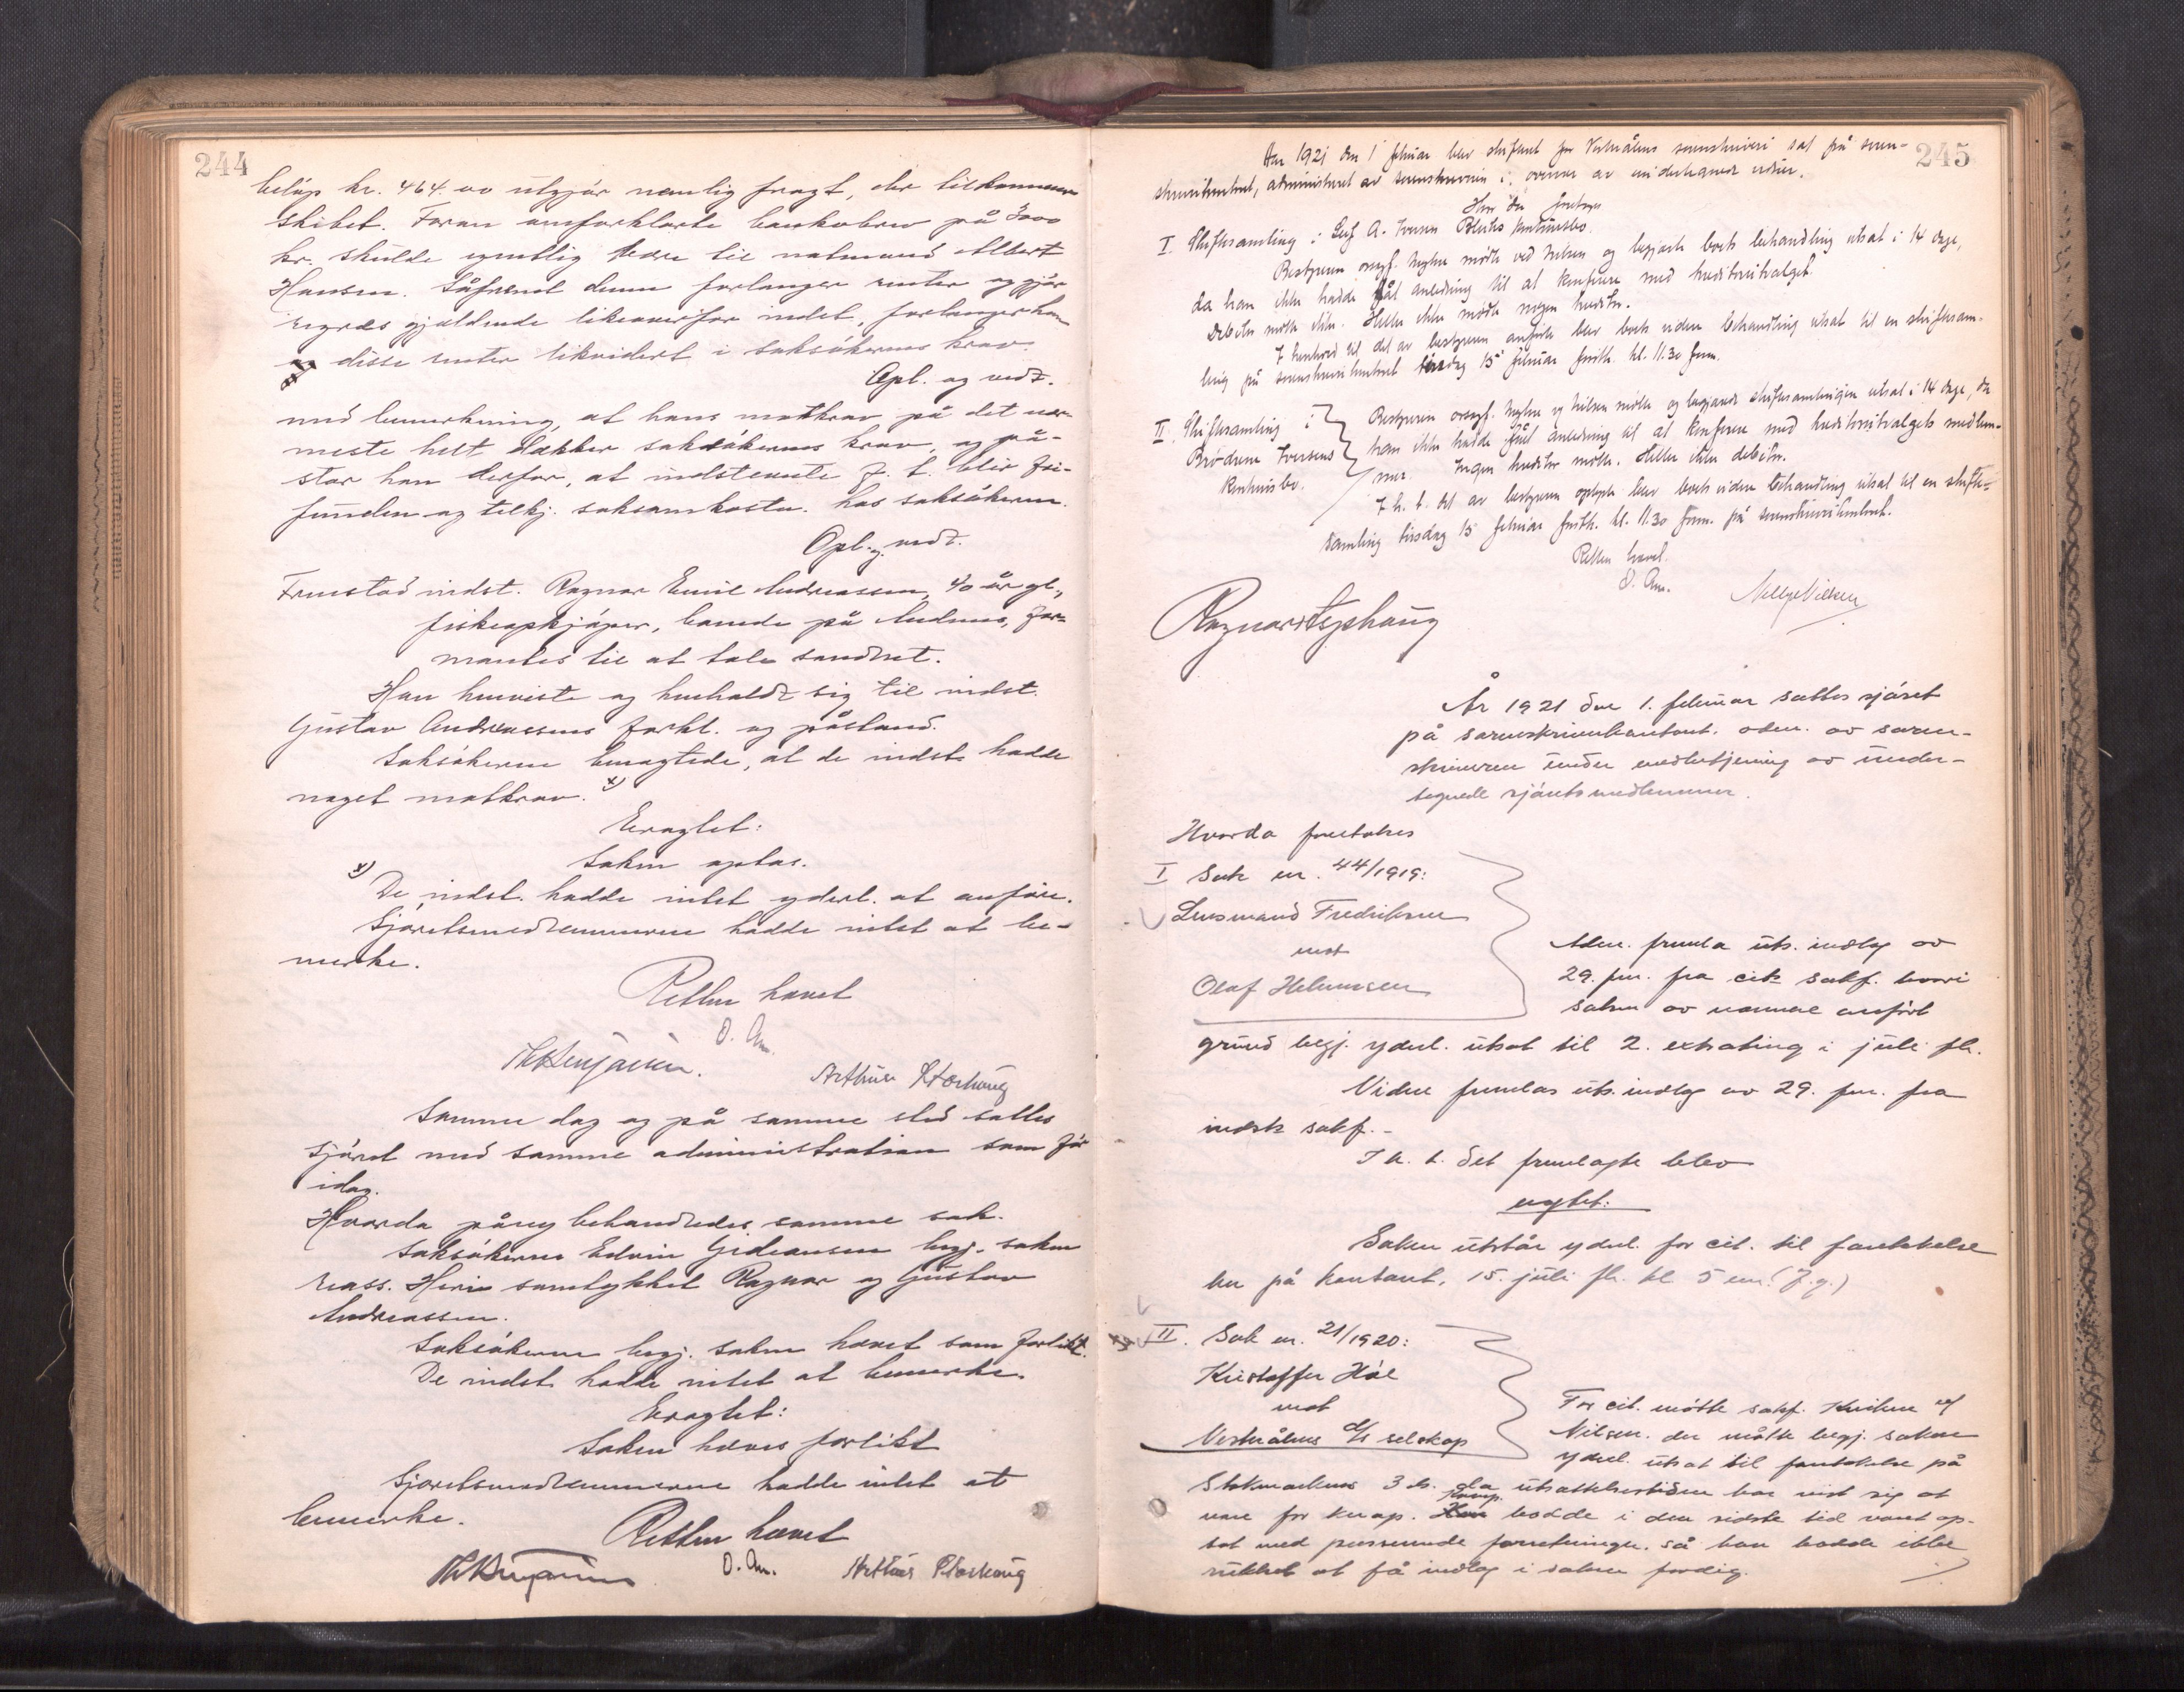 244
beløp kr. 464.00 utgjør nemlig fragt, der tilkommer
skibet. Foran omforklarte bankobrev på 3000
kr. skulde egentlig være til notmand Albert
Hansen. Såfremt denne forlanger renter og gjør
regres gjældende likeoverfor indst., forlanger han
og disse renter likvidert i saksøkernes krav.
Opl. og vedt.
med bemerkning, at hans motkrav på det nær-
meste helt dækker saksøkernes krav, og på-
står han derfor, at indstevnte f. t. blir fri-
funden og tilkj. saksomkostn. hos saksøkerne.
Opl. og vedt.
Fremstod indst. Ragnar Emil Andreassen, 40 år gl.,
fiskeopkjøper, boende på Andenes, for-
mantes til at tale sandhet.
Han henviste og henholdt sig til indst.
Gustav Andreassens forkl. og påstand.
Saksøkerne benegtede, at de indst. hadde
noget motkrav. x)
Eragtet:
Saken optas.
x) De indst. hadde intet yderl. at anføre.
Sjøretsmedlemmerne hadde intet at be-
merke.
Retten hævet
O. Am.
Arthur Storhaug
Samme dag og på samme sted sattes
sjøret med samme administration som før
idag.
Hvorda påny behandledes samme sak.
Saksøkerne Edvin Gideonsen begj. saken
reass. Heri samtykket Ragnar og Gustav
Andreassen.
Saksøkerne begj. saken hævet som forlikt.
De indst. hadde intet at bemerke.
Eragtet:
Saken hæves forlikt
Sjøretsmedlemmerne hadde intet at
bemerke.
Retten hævet
O. Am. Arthur Storhaug
245
Aar 1921 den 1 februar blev skifteret for Vesterålens sorenskriveri sat på soren-
skriverkontoret, administrert av sorenskriveren i overvær av undertegnede vidner.
Hvor da foretoges
I. Skiftesamling i Leif A. Iversen Bleiks konkursbo.
Bestyreren orsagf. Meyher møtte ved Nilsen og begjærte boets behandling utsat i 14 dage,
da han ikke hadde fåt anledning til at konferere med kreditorutvalget.
Debitor møtte ikke. Heller ikke møtte nogen kreditor.
I henhold til det av bestyreren anførte blev boets videre behandling utsat til en skiftesam-
ling på sorenskriverkontoret tirsdag 15 februar førstk. kl. 11.30 form.
II. Skiftesamling i
Brødrene Iversens
konkursbo.
Bestyreren orsagf. Meyher ved Nilsen møtte og begjærte skiftesamlingen utsat i 14 dage, da
han ikke hadde fåt anledning til at konferere med kreditorutvalgets medlem-
mer. Ingen kreditor møtte. Heller ikke debitor.
I h. t. det av bestyreren oplyste blev boets videre behandling utsat til en skifte-
samling tirsdag 15 februar førstk. kl. 11.30 form. på sorenskriverkontoret.
Retten hævet.
O. Am. Nelly Nilsen
År 1921 den 1. februar sattes sjøret
på sorenskriverkontoret. adm. av soren-
skriveren under medbetjening av under-
tegnede sjøretsmedlemmer.
Hvorda foretokes
I Sak nr. 44/1919:
Lensmand Fredriksen
mot
Olaf Helmersen
Adm. fremla uts. indlæg av
29. f.m. fra cits sakf. hvori
saken av nærmere anført
grund begj. yderl. utsat til 2. ekstrating i juli fk.
Videre fremlas uts. indlæg av 29. f.m. fra
indsts sakf. -
I h. t. det fremlagte blev
eragtet:
Saken utstår yderl. for cit. til foretakelse
her på kontoret, 15. juli fk. kl. 5 em. (F.g.)
II. Sak nr. 21/1920:
Kristoffer Hól
mot
Vesterålens D/S selskap
For cit. møtte sakf. ved
Nilsen. der måtte begj. saken
yderl. utsat til foretakelse på
Stokmarknes 3 ds. da utsættelsestiden har vist sig at
være for knap. Komp. hadde i den sidste tid været op-
tat med presserende forretninger. så han hadde ikke
rukket at få indlæg i saken færdig.